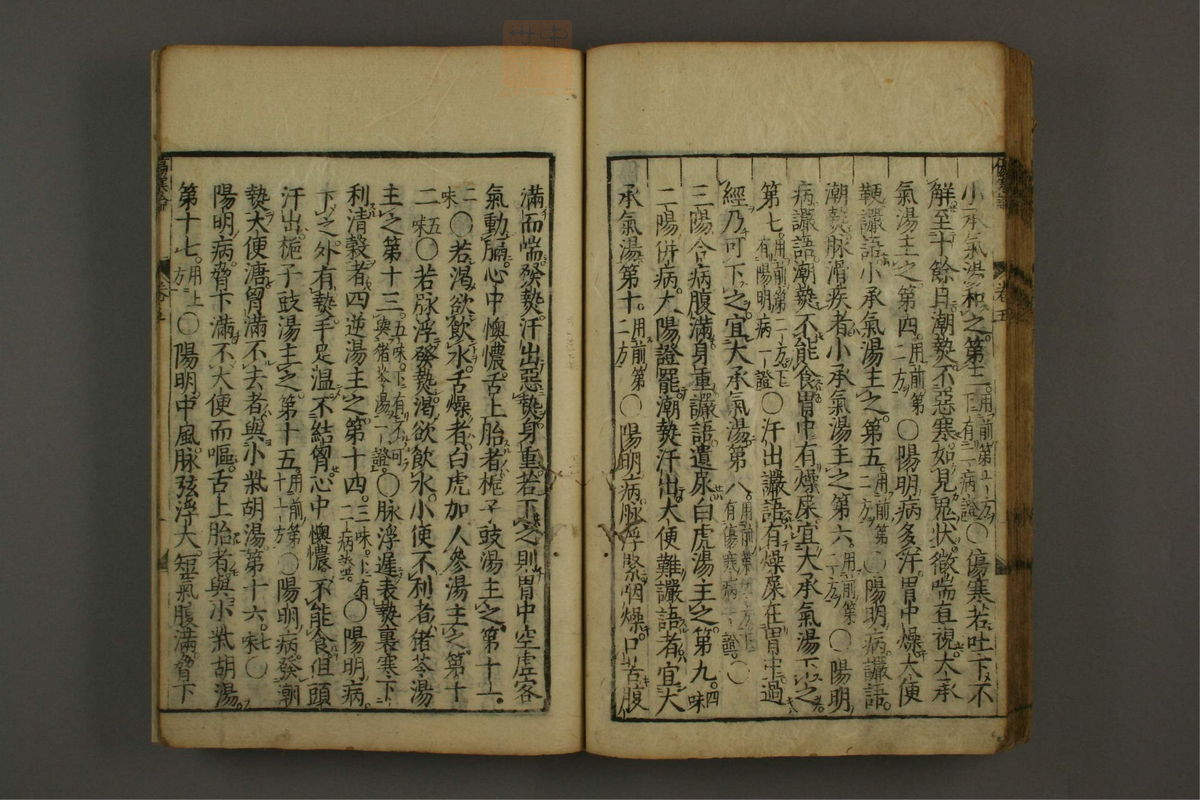 小承氣湯和之第三用前第二方下有二病證〇傷寒若吐下不
解至十餘日潮熱不惡寒如見鬼狀微喘直視大承
氣湯主之第四用前第二方〇陽明病多汗胃中燥大便
鞕讝語小承氣湯主之第五用前第二方〇陽明病讝語
潮熱脉滑疾者小承氣湯主之第六用前第二方〇陽明
病讝語潮熱不能食胃中有燥屎宜大承氣湯下之
第七用前第二方下有陽明病一證〇汗出讝語有燥屎在胃中過
經乃可下之宜大承氣湯第八用前第二方下有傷寒病一證〇
三陽合病腹滿身重讝語遺尿白虎湯主之第九四味〇
二陽併病太陽證罷潮熱汗出大便難讝語者宜大
承氣湯第十用前第二方〇陽明病脉浮緊咽燥口苦腹
滿而喘發熱汗出惡熱身重若下之則胃中空虛客
氣動膈心中懊憹舌上胎者梔子豉湯主之第十一
二味〇若渴欲飲水舌燥者白虎加人參湯主之第十
二五味〇若脉浮發熱渴欲飲水小便不利者猪苓湯
主之第十三五味下有不可與猪苓湯一證〇脉浮遲表熱裏寒下
利清穀者四逆湯主之第十四三味下有二病證〇陽明病
下之外有熱手足溫不結胸心中懊憹不能食但頭
汗出梔子豉湯主之第十五用前第十一方〇陽明病發潮
熱大便溏胸滿不去者與小柴胡湯第十六七味〇
陽明病脅下滿不大便而嘔舌上胎者與小柴胡湯
第十七用上方〇陽明中風脉弦浮大短氣腹滿脅下
傷寒論
卷五